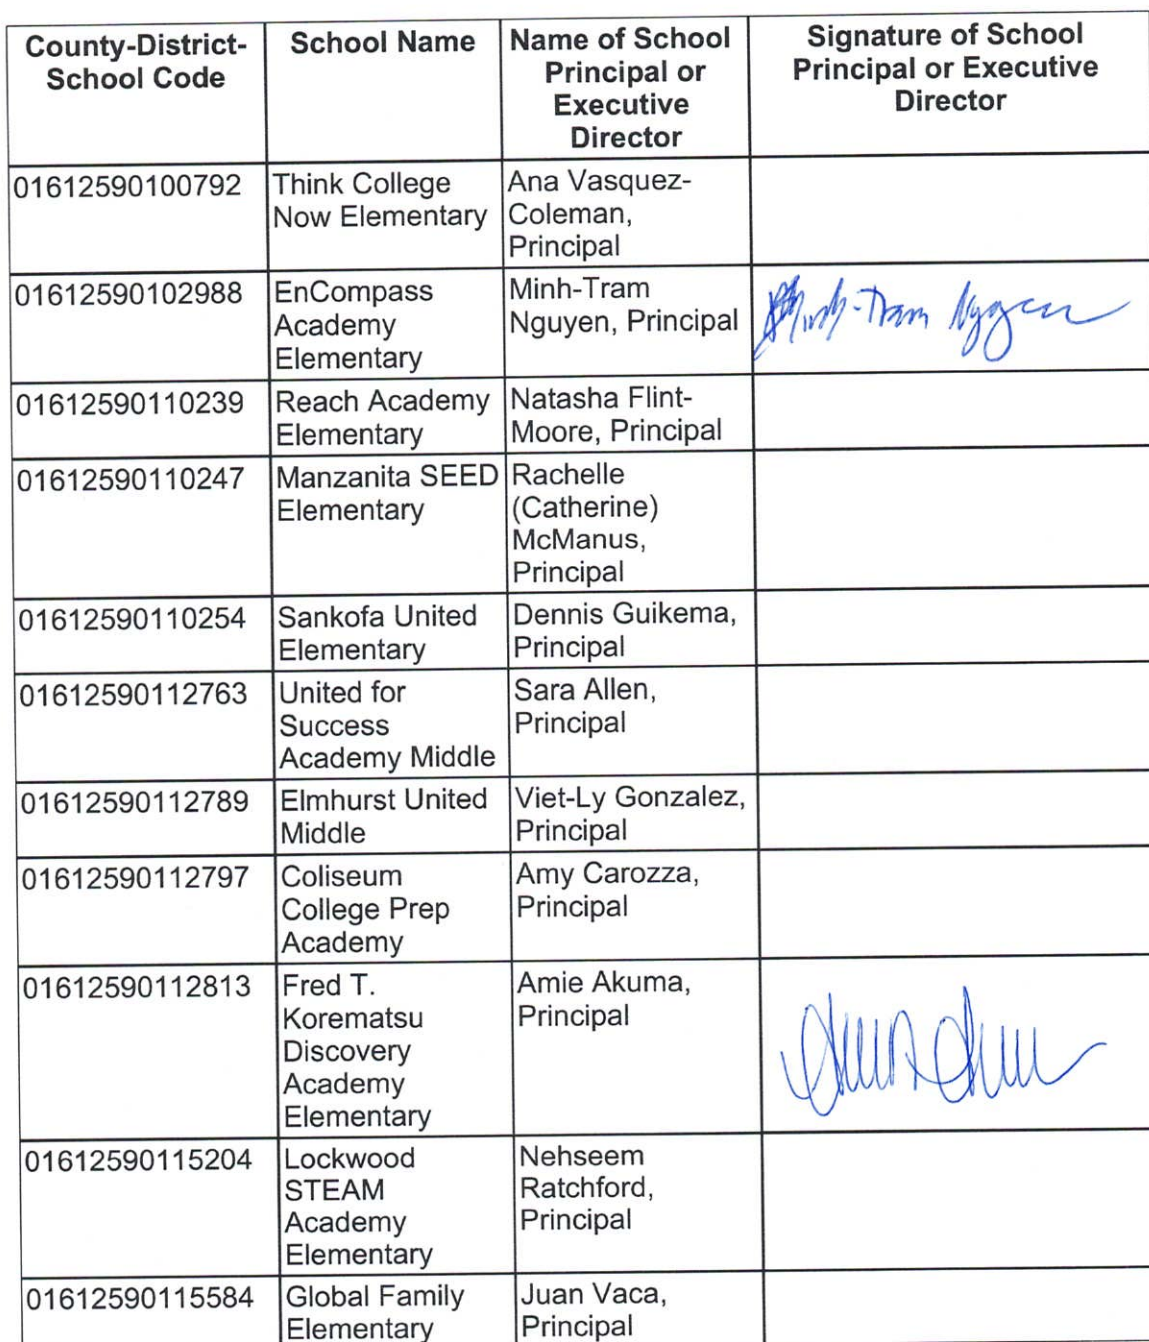 County-District-
School Code
School Name
Name of School
Principal or
Executive
Director
Signature of School
Principal or Executive
Director
01612590100792
Think College
Now Elementary
Ana Vasquez-
Coleman,
Principal
01612590102988
EnCompass
Academy
Elementary
Minh-Tram
Nguyen, Principal
Minh-Tram Nguyen
01612590110239
Reach Academy
Elementary
Natasha Flint-
Moore, Principal
01612590110247
Manzanita SEED
Elementary
Rachelle
(Catherine)
McManus,
Principal
01612590110254
Sankofa United
Elementary
Dennis Guikema,
Principal
01612590112763
United for
Success
Academy Middle
Sara Allen,
Principal
01612590112789
Elmhurst United
Middle
Viet-Ly Gonzalez,
Principal
01612590112797
Coliseum
College Prep
Academy
Amy Carozza,
Principal
01612590112813
Fred T.
Korematsu
Discovery
Academy
Elementary
Amie Akuma,
Principal
01612590115204
Lockwood
STEAM
Academy
Elementary
Nehseem
Ratchford,
Principal
01612590115584
Global Family
Elementary
Juan Vaca,
Principal